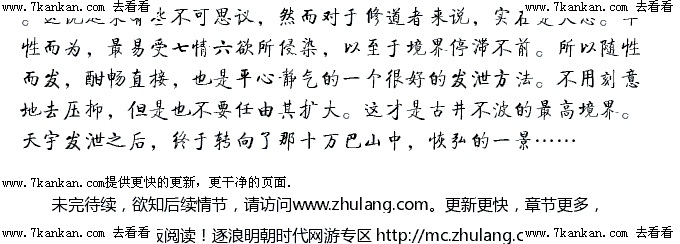 性而为，最易受七情六欲所侵染，以至于境界停滞不前。所以随性
而发，酣畅直接，也是平心静气的一个很好的发泄方法。不用刻意
地去压抑，但是也不要任由其扩大。这才是古井不波的最高境界。
天宇发泄之后，终于转向了那十万巴山中，恢弘的一景……
www.7kankan.com 去看看 www.7kankan.com 去看看
www.7kankan.com提供更快的更新，更干净的页面.
未完待续，欲知后续情节，请访问www.zhulang.com。更新更快，章节更多，
www.7kankan.com 去看看 阅读！逐浪明朝时代网游专区 http://mc.zhulang.c www.7kankan.com 去看看